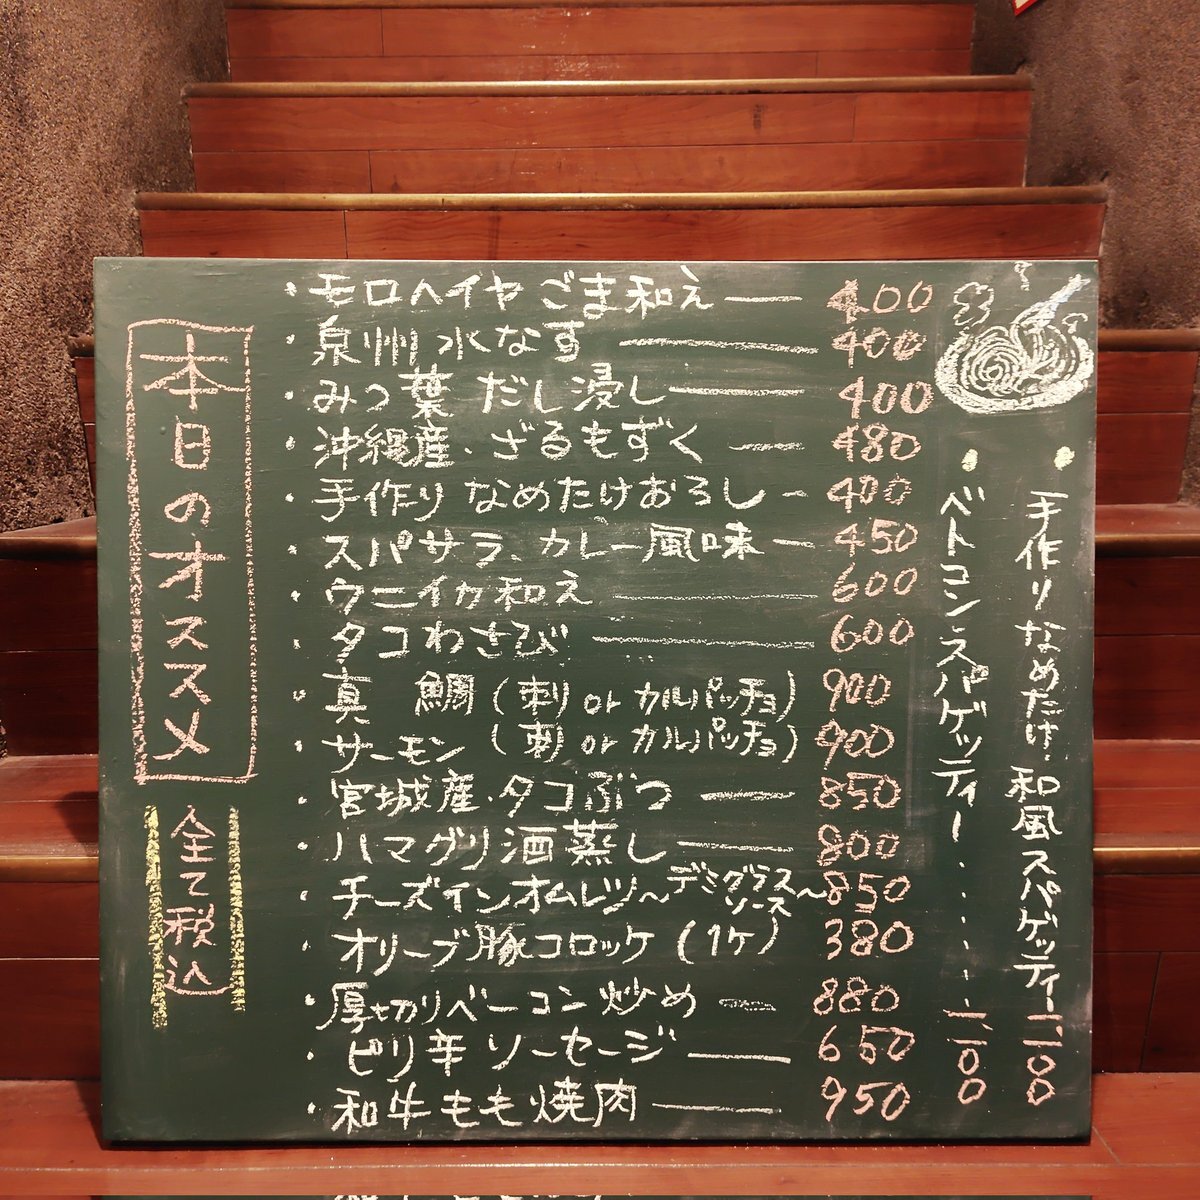 本日のオススメ
全て税込
・モロヘイヤごま和え — 400
・泉州水なす — 400
・みつ葉だし浸し — 400
・沖縄産・ざるもずく — 480
・手作りなめたけおろし - 400
・スパサラ、カレー風味 - 450
・ウニイカ和え — 600
・タコわさび — 600
・真鯛 (刺 or カルパッチョ) 900
・サーモン (刺 or カルパッチョ) 900
・宮城産・タコぶつ — 850
・ハマグリ酒蒸し — 800
・チーズインオムレツ〜デミグラスソース〜 850
・オリーブ豚コロッケ (1ケ) 380
・厚切りベーコン炒め — 880
・ピリ辛ソーセージ — 650
・和牛もも焼肉 — 950
・手作りなめたけ和風スパゲッティー 1,100
・ベトコン、スパゲッティー・・・・・・ 1,100